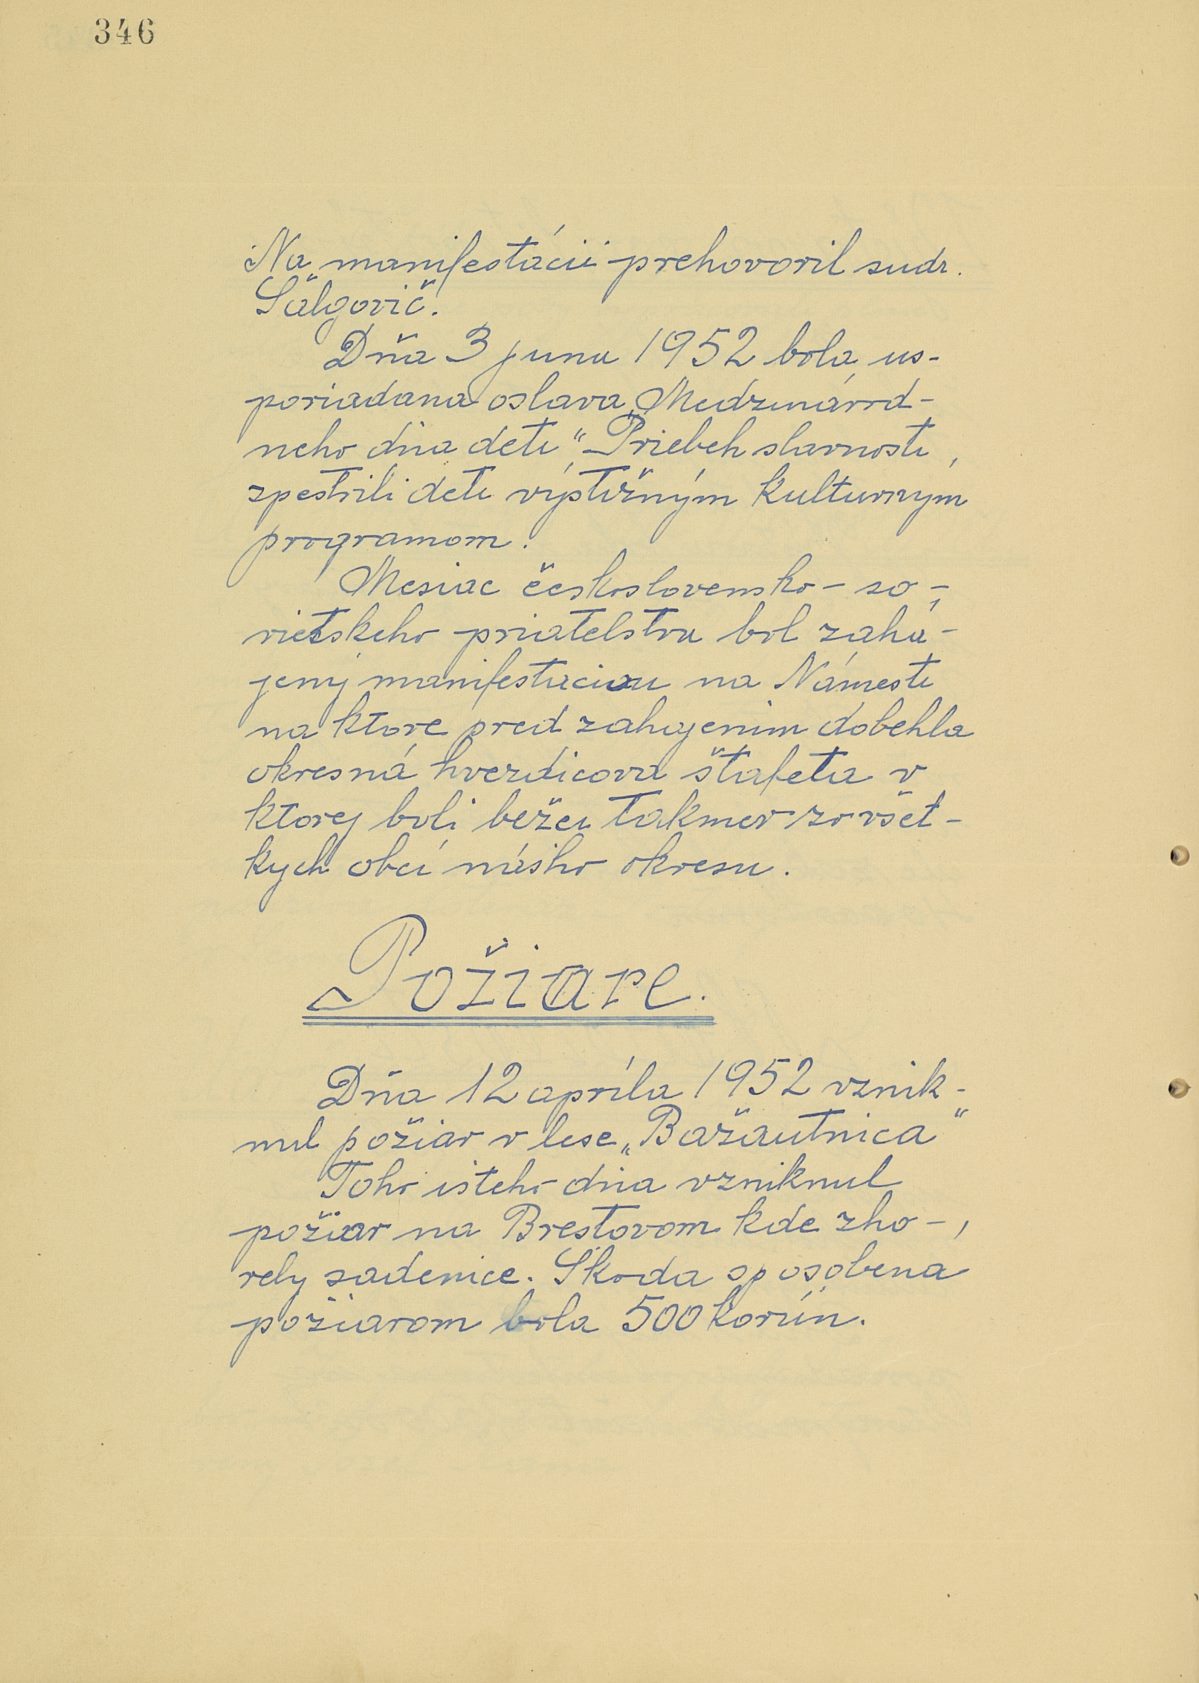 346
Na manifestácii prehovoril sudr.
Šalgovič.
Dňa 3 junu 1952 bola us-
poriadana oslava „Medzinárod-
neho dňa deti“ Priebeh slavnosti
spestrili deti výstižným kulturnym
programom.
Mesiac československo-so-
vietskeho priatelstva bol zahá-
jený manifestaciou na Námesti
na ktore pred zahajenim dobehla
okresná hvezdicova štafeta v
ktorej boli bežci takmer zo všet-
kych obcí nášho okresu.
Požiare.
Dňa 12 apríla 1952 vznik-
nul požiar v lese „Bažantnica“
Toho isteho dňa vzniknul
požiar na Brestovom kde zho-
rely sadenice. Škoda sposobena
požiarom bola 500 korún.